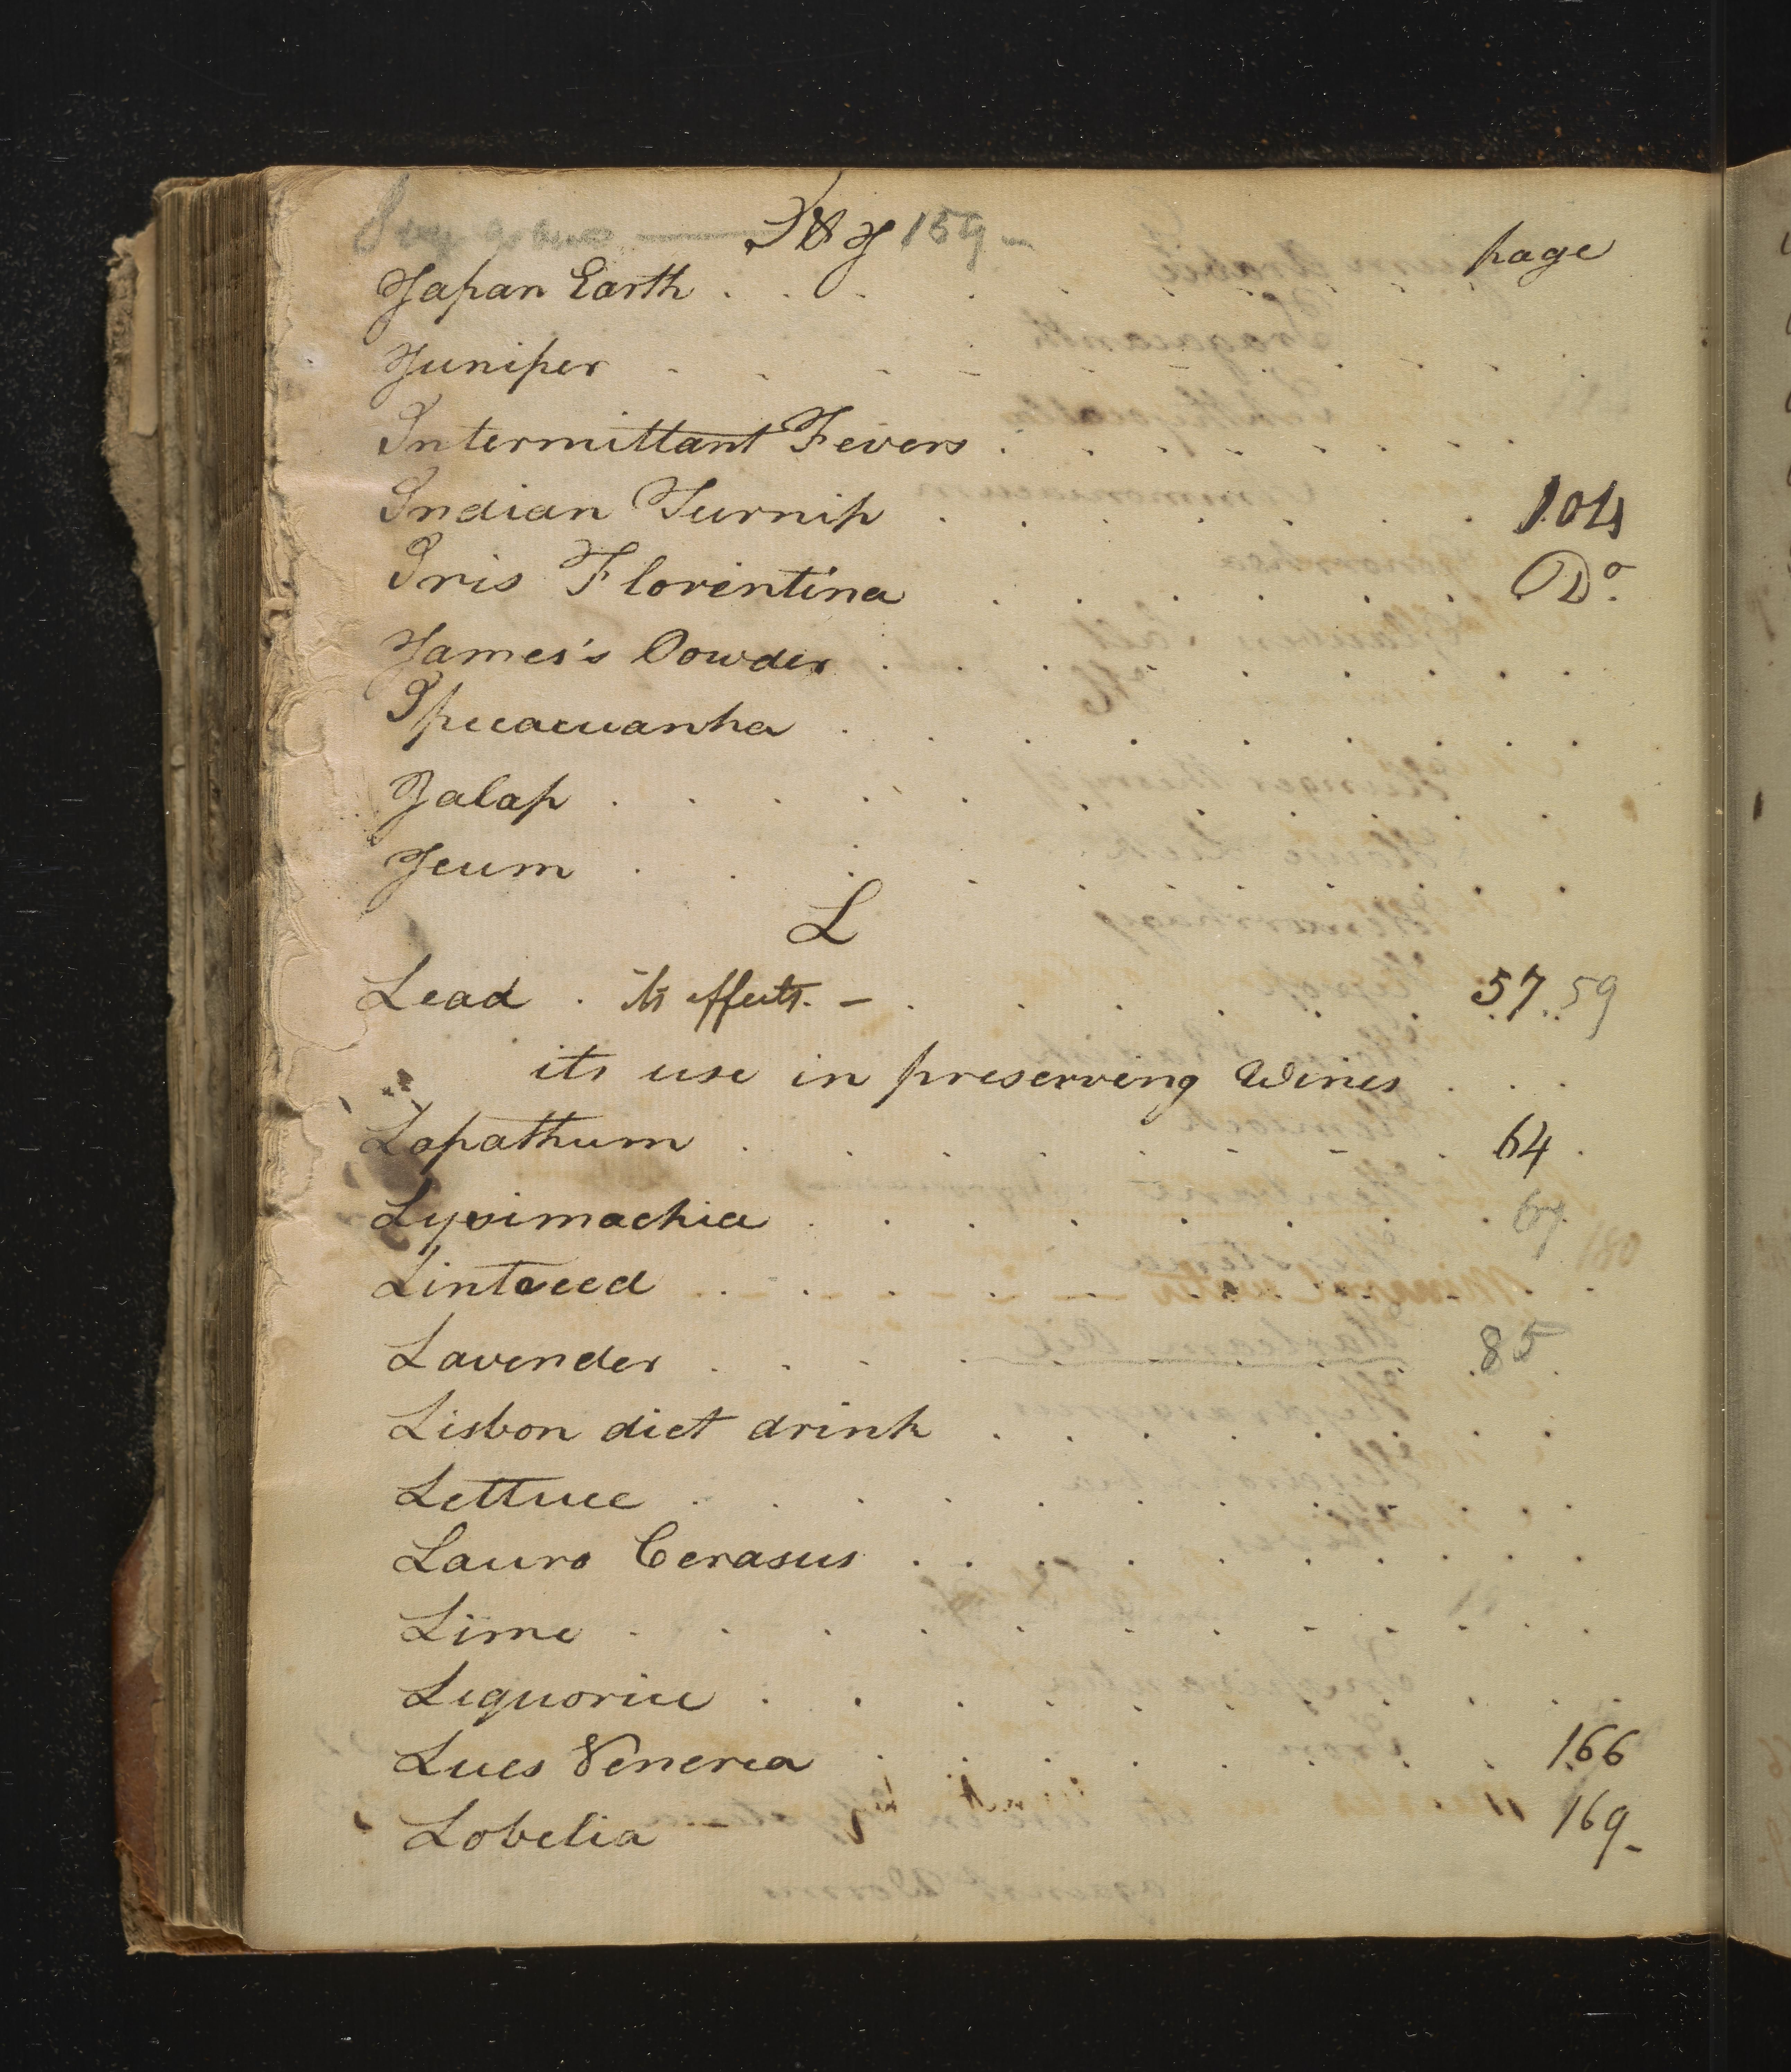 I & J 159 -
page
Japan Earth . . . . . . . .
Juniper . . . . . . . . . .
Intermittant Fevers . . . . . . . .
Indian Turnip . . . . . . . 104
Iris Florentina . . . . . . Do.
James's Powder . . . . . . . .
Ipecacuanha . . . . . . . .
Jalap . . . . . . . . . .
Jeum . . . . . . . . .
L
Lead . its effects. - . . . . . . 57. 59
its use in preserving Wines . . .
Lapathum . . . . . . . . 64 .
Lysimachia . . . . . . . .
Lintseed . . . . . . . . .
Lavender . . . . . . . . 85
Lisbon diet drink . . . . . . .
Lettuce . . . . . . . . . .
Lauro Cerasus . . . . . . . . .
Lime . . . . . . . . . .
Liquorice . . . . . . . . .
Lues Venerea . . . . . . . 166
Lobelia 169 -